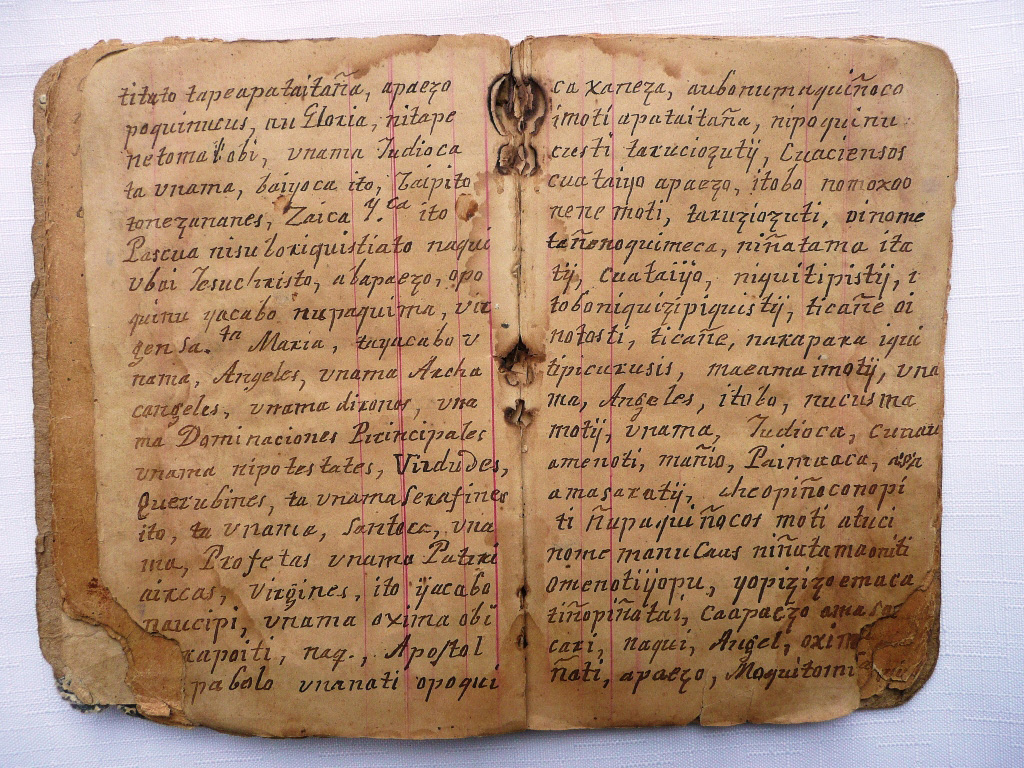 titato tapeapataitaña, apaezo
poquinucus, au Gloria, nitape
netoma obi, vnama Iudioca
ta vnama, baiyoca ito, Taipito
tonezananes, Zaica y.ta ito
Pascua nisuboriquistiato naqui
vbai Iesuchristo, abapaezo, opo
quinu yacabo nupaquima, vir
gen sa.ta Maria, tayacabo v
nama, Angeles, vnama Archa
cangeles, vnama dironos, vna
ma Dominaciones Principales
vnama nipotestates, Virdudes,
Querubines, ta vnama Serafines
ito, ta vnama, Santoca, vna
ma, Profetas vnama Patri
aircas, Virgines, ito ÿacabo
naucipi, vnama oxima obi
rapoiti, naq., Apostol
pabolo vnanati opoqui
ca xaneza, aubonumaquiñoco
imoti apataitaña, nipoquinu
custi taruciozutij, Cuaciensos
cuataiyo apaezo, itobo nomoxoo
nene moti, taruziozuti, vinome
tañenoquimeca, niñatama ita
tij, cuataijo, niquitipistij, i
toboniquizipiquistij, ticañe oi
notosti, ticañe, narapara iqui
tipicurusis, maeama imotij, vna
ma, Angeles, itobo, nucusma
motij, vnama, Iudioca, cunau
amenoti, mañio, Paimraca,
amasaratij, checopiñoconopi
ti ñupaquiñocos moti atuci
nome manucaas niñatamaoniti
omenotiijopu, yopizizoemaca
tiñopiñatai, caapaezo
cari, naqui, Angel, oxim
ñati, apaezo, Moquitomi